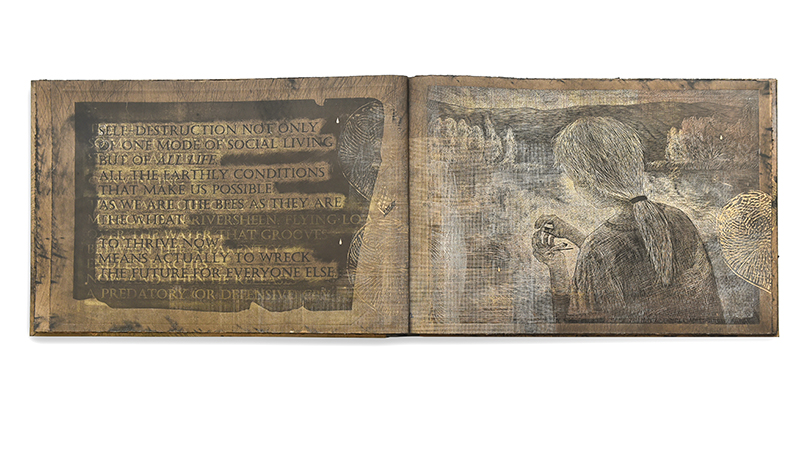 SELF-DESTRUCTION NOT ONLY
OF ONE MODE OF SOCIAL LIVING
BUT OF ALL LIFE
ALL THE EARTHLY CONDITIONS
THAT MAKE US POSSIBLE
AS WE ARE THE BEES AS THEY ARE
THE WHEAT RIVERSHEEN, FLYING LO
WATER THAT GROOVE
TO THRIVE NOW
MEANS ACTUALLY TO WRECK
THE FUTURE FOR EVERYONE ELSE
A PREDATORY OR DEFENSIVE